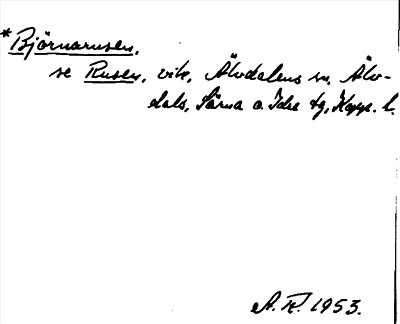 *Björnarusen,
se Rusen, vik, Älvdalens sn, Älv-
dals, Särna o. Idre tg, Kopp. l.
A.R. 1953.